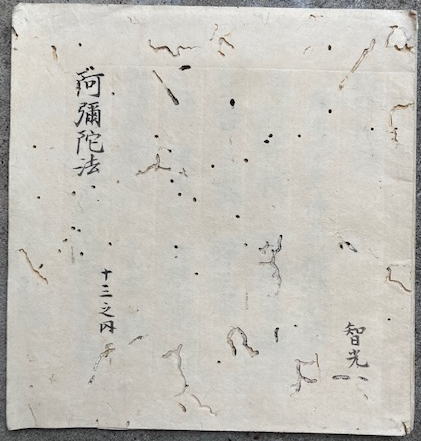 阿彌陀法
十三之内
智光